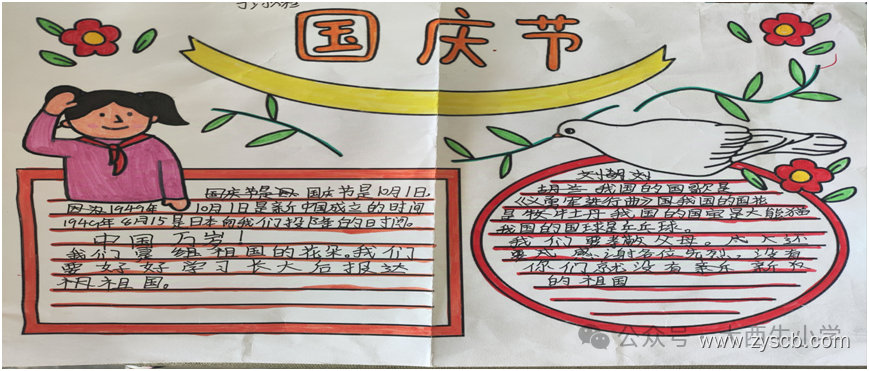 国庆节
国庆节是 国庆节是10月1日,
因为1949年10月1日是新中国成立的时间
1945年8月15是日本向我们投降的日时间。
中国万岁!
我们是祖国的花朵。我们
要好好学习长大后报达
祖国。
刘胡刘
胡兰我国的国歌是
《义勇军进行曲》国我国的国花
是牡丹我国的国宝是大熊猫
我国的国球是乒乓球。
我们要孝敬父母。
感谢各位先烈,没有
你们就没有
的祖国
公众号
www.zyscb.com